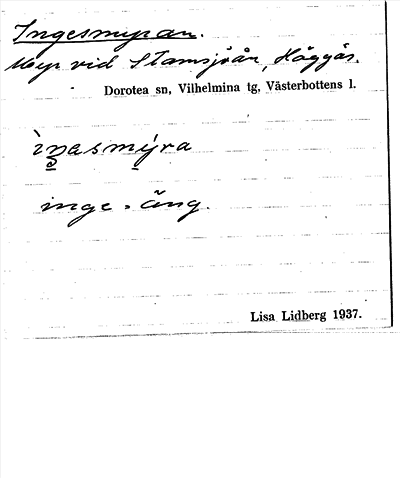 Ingesmyran.
Myr vid Stamsjöån, Häggås.
Dorotea sn, Vilhelmina tg, Västerbottens l.
ìŋasmýra
inge = äng.
Lisa Lidberg 1937.